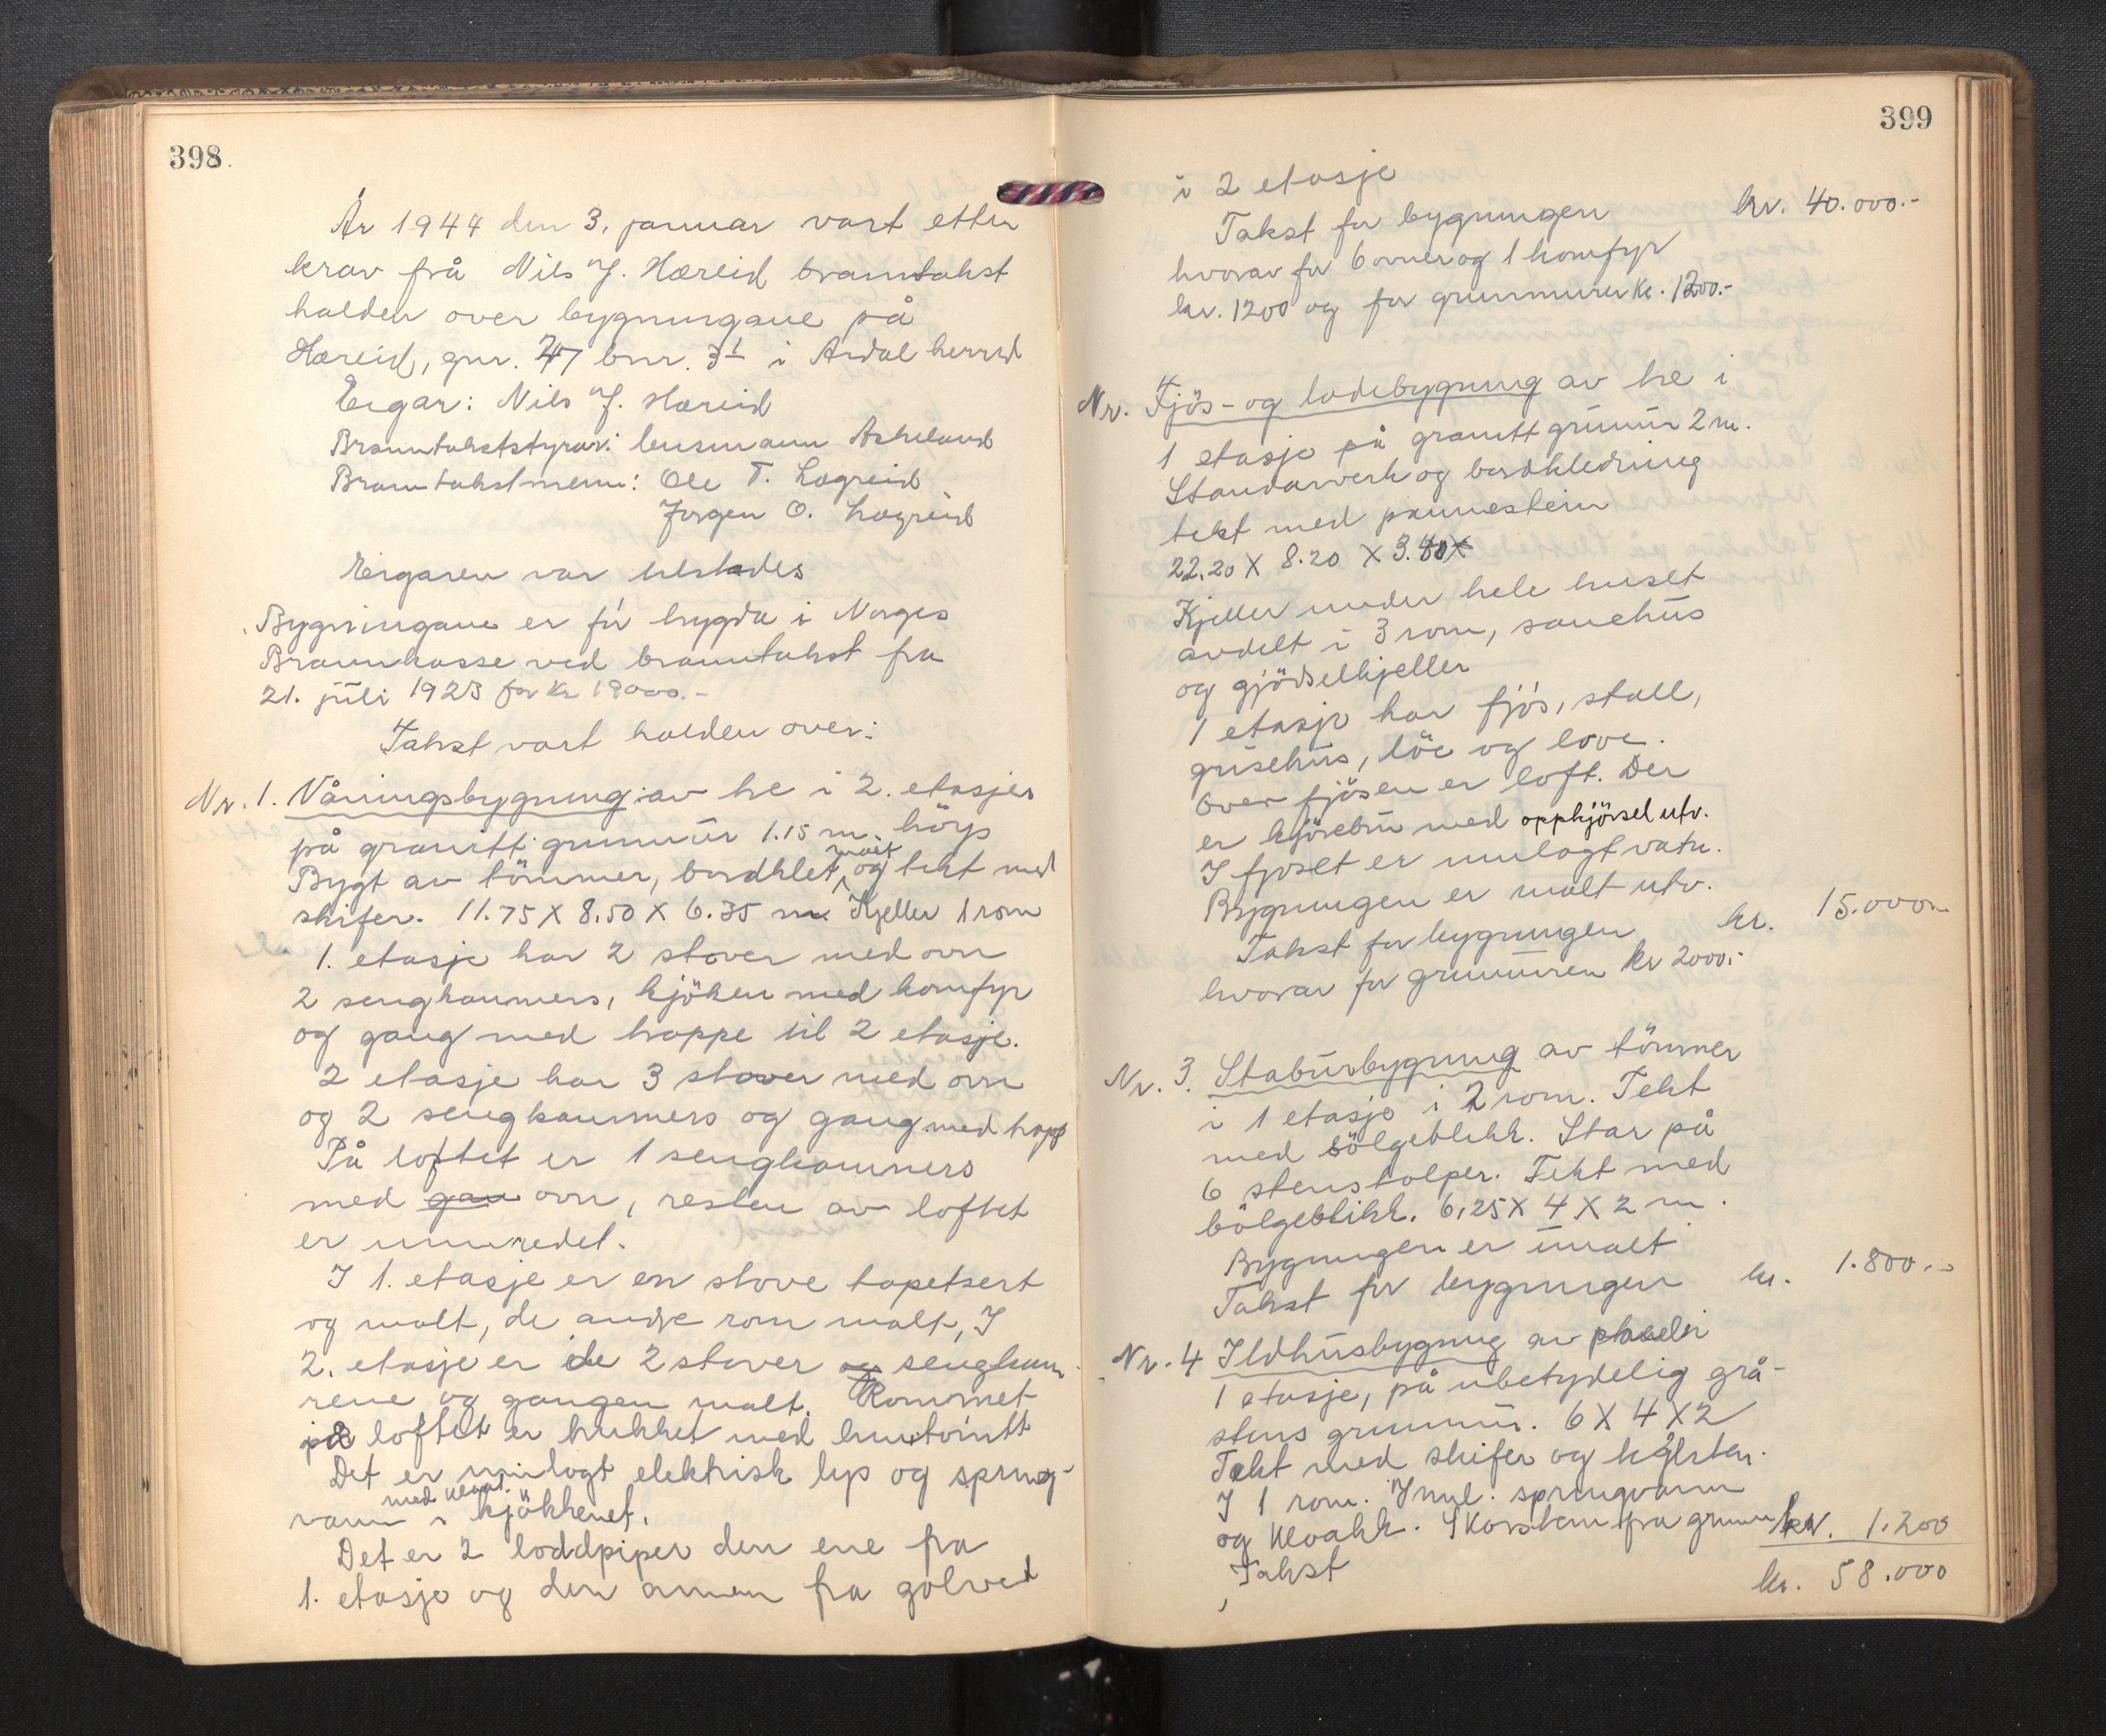 398
År 1944 den 3. januar vart etter
krav frå Nils J. Hæreid branntakst
halden over bygningane på
Hæreid, gnr. 47 bnr. 3 i Årdal herred
Eigar: Nils J. Hæreid
Branntakststyrar: lensmann Askeland
Branntakstmenn: Ole T. Lægreid
Jørgen O. Lægreid
Eigaren var tilstades
Bygningane er før trygda i Norges
Brannkasse ved branntakst fra
21. juli 1923 for kr 19000.-
Takst vart halden over:
Nr. 1. Våningsbygning av tre i 2. etasjer
på granitt grunnmur 1.15 m. höys
malt
Bygt av tömmer, bordklet, og tekt med
skifer. 11.75 X 8.50 X 6.35 m Kjeller 1 rom
1. etasje har 2 stover med ovn
2 sengkammers, kjöken med komfyr
og gang med trappe til 2 etasje.
2 etasje har 3 stover med ovn
og 2 sengkammers og gang med trapp
På loftet er 1 sengkammers
med gan ovn, resten av loftet
er uinnredet.
I 1. etasje er en stove tapetsert
og malt, de andre rom malt, I
2. etasje er de 2 stover og sengkam-
rene og gangen malt. Rommet
på loftet er trukket med huntonitt
Det er innlagt elektrisk lys og spring-
med kloakk
vann i kjökkenet.
Det er 2 loddpiper den ene fra
1. etasje og den annen fra golved
399
i 2 etasje
Takst for bygningen kr. 40.000.-
hvorav for 6 ovner og 1 komfyr
kr. 1200 og for grunnmuren kr. 1200.-
Nr. Fjös- og lödebygning av tre i
1 etasje på granitt grunnmur 2 m.
Standarverk og bordkledning
tekt med pannestein
22.20 X 8.20 X 3.40 X
Kjeller under hele huset
avdelt i 3 rom, sauehus
og gjödselkjeller
1 etasje har fjös, stall,
grisehus, löe og love.
Over fjösen er loft. Der
er kjörebru med oppkjörsel utv.
I fjoset er innlagt vatn.
Bygningen er malt utv.
Takst for bygningen kr. 15.000.-
hvorav for grunnmuren kr 2000.-
Nr. 3. Stabursbygning av tömmer
i 1 etasje i 2 rom. Tekt
med bölgeblikk. Står på
6 stenstolper. Tekt med
bölgeblikk. 6,25 X 4 X 2 m.
Bygningen er umalt
Takst for bygningen kr. 1.800.-
Nr. 4 Ildhusbygning av
1 etasje, på ubetydelig grå-
stens grunnmur. 6 X 4 X 2
Tekt med skifer og
I 1 rom. Innl. springvann
og kloakk. Skorsten fra grunn kr. 1.200
Takst kr. 58.000